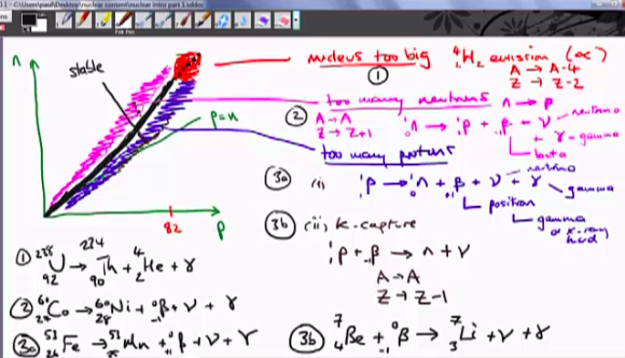 0.1 - C:\Users\paol\Desktop\nuclear content\nuclear intro part 1.sddoc
Felt Pen
n
stable
p=n
82
p
nucleus too big ⁴₂H₂ emission (α)
① A → A-4
Z → Z-2
too many neutrons n → p
② A → A
Z → Z+1
¹₀n → ¹₁p + ₋₁β + ν neutrino
+ γ - gamma
beta
too many protons
③a (i) ¹₁p → ¹₀n + ₊₁β + ν + γ
neutrino
gamma
positron
gamma or x-ray hard
③b (ii) K-capture
¹₁p + ₋₁β → n + ν
A → A
Z → Z-1
① ²³⁸₉₂U → ²³⁴₉₀Th + ⁴₂He + γ
② ⁶⁰₂₇Co → ⁶⁰₂₈Ni + ⁰₋₁β + ν + γ
③a ⁵¹₂₆Fe → ⁵¹₂₅Mn + ⁰₊₁β + ν + γ
③b ⁷₄Be + ⁰₋₁β → ⁷₃Li + ν + γ